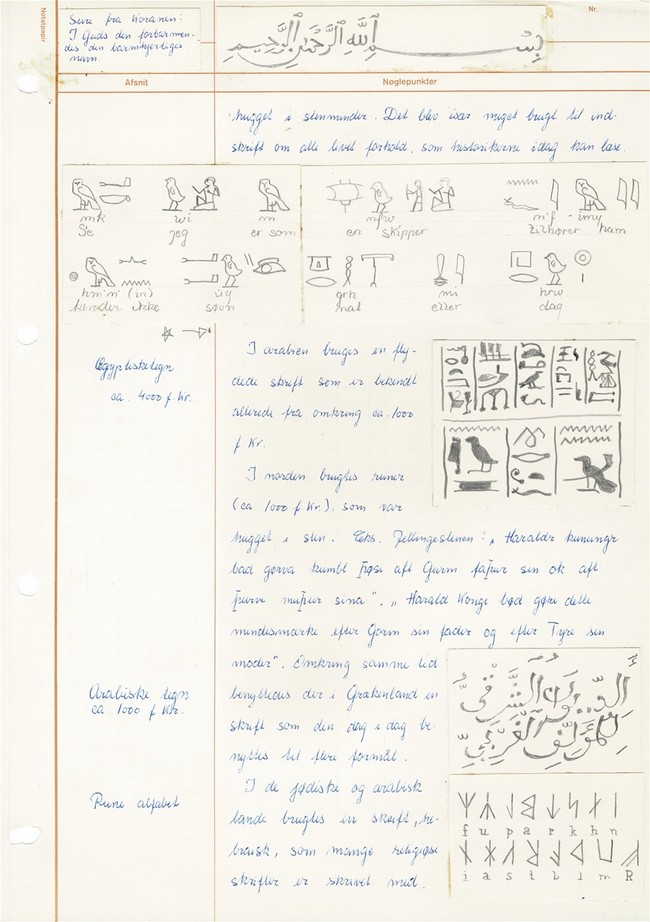 Notatpapir
Nr.
Sure fra Koranen:
I Guds den forbarmen-
des den barmhjertiges
navn.
بِسْمِ اللَّهِ الرَّحْمَٰنِ الرَّحِيمِ
Afsnit
Nøglepunkter
hugget i stenminder. Det blev især meget brugt til ind-
skrift om alle livet forhold, som historikerne idag kan læse.
mk wi m nfw n·f - imy
Se jeg er som en skipper tilhører ham
hmn (in) grh mi hrw
kender ikke søvn nat eller dag
Ægyptiske tegn
ca. 4000 f. Kr.
I arabien bruges en fly-
dede skrift som er bekendt
allerede fra omkring ca. 1000
f Kr.
I norden brugtes runer
(ca 1000 f. Kr.), som var
hugget i sten. Eks. Jellingestenen: „Haraldr kunungr
bad gørva kumbl þøsi aft Gurm faþur sin ok aft
þurvi muþur sina". „Harald Konge bød gøre dette
mindesmærke efter Gorm sin fader og efter Tyre sin
moder". Omkring samme tid
benyttedes der i Grækenland en
skrift som den dag i dag be-
nyttes til flere formål.
Arabiske tegn
ca. 1000 f Kr.
I de jødiske og arabisk
lande brugtes en skrift, he-
braisk, som mange religiøse
skrifter er skrevet med.
Rune alfabet
f u þ a r k h n
i a s t b l m R